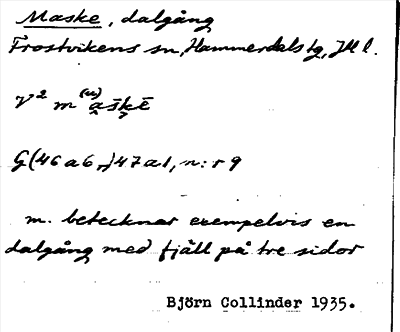 Maske, dalgång
Frostvikens sn, Hammerdals tg, Jtl l.
V² m(u)
G(46a6,,)47a1, n:r 9
m. betecknar exempelvis en
dalgång med fjäll på tre sidor
Björn Collinder 1935.